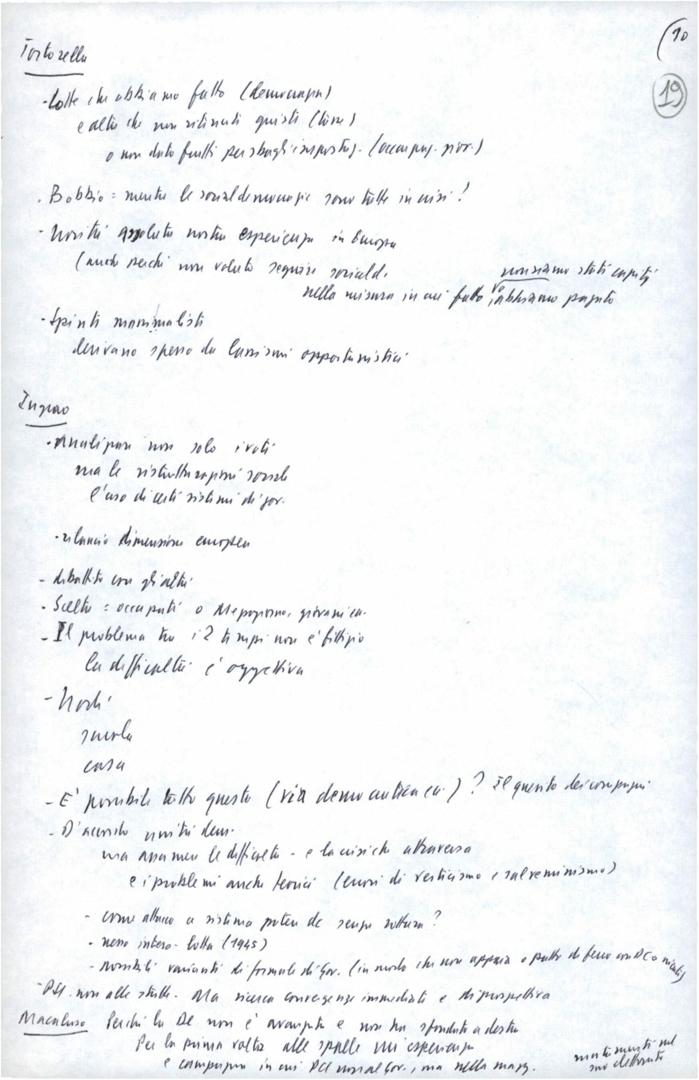 10
19
Tortorella
- Lotte che abbiamo fatto (democrazia)
e altre che non ritenuti giusti
o non dato frutti per sbagli impostaz. (occupaz. giov.)
. Bobbio = mentre le socialdemocrazie sono tutte in crisi?
- Novità assoluta nostra esperienza in Europa
(anche perché non voluto seguire sociald.
non siamo stati capiti
nella misura in cui fatto lo abbiamo pagato
- Spinte massimaliste
derivano spesso da lassismi opportunistici
Ingrao
- Analizzare non solo i voti
ma le ristrutturazioni sociali
l'uso di certi sistemi di gov.
- rilancio dimensione europea
- dibattito con gli altri
- Scelta = occupati o Mezzogiorno, giovani ecc.
- Il problema tra i 2 tempi non è fittizio
la difficoltà è oggettiva
- Nodi
scuola
casa
- E' possibile tutto questo (via democratica ecc.)? Il quesito dei compagni
- D'accordo unità dem.
ma assumere le difficoltà - e la crisi che attraversa
e i problemi anche teorici (errori di verticismo e salveminismo)
- come attacco a sistema potere dc senza rottura?
- nesso intesa-lotta (1945)
- possibili varianti di formule di gov. (in modo che non appaia o patto di ferro con DC o
- PSI. non alle strette. Ma ricerca convergenze immediate e di prospettiva
Macaluso Perché la DC non è avanzata e non ha sfondato a destra
Per la prima volta alle spalle un'esperienza
e campagna in cui PCI non al gov., ma nella magg.